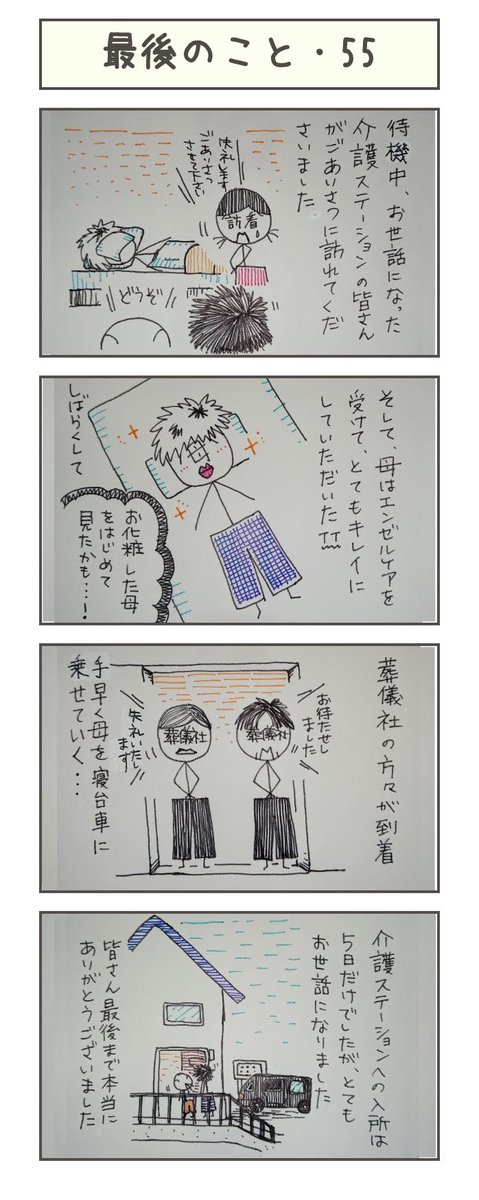 最後のこと・55
待機中、お世話になった
介護ステーションの皆さん
がごあいさつに訪れてくだ
さいました
失礼します
ごあいさつ
させて下さい
訪看
どうぞ
そして、母はエンゼルケアを
受けて、とてもキレイに
していただいた
しばらくして
お化粧した母
をはじめて
見たかも・・・!
葬儀社の方々が到着
お待たせし
ました
葬儀社
葬儀社
失礼いたし
ます
手早く母を寝台車に
乗せていく・・・
介護ステーションへの入所は
5日だけでしたが、とても
お世話になりました
皆さん最後まで本当に
ありがとうございました